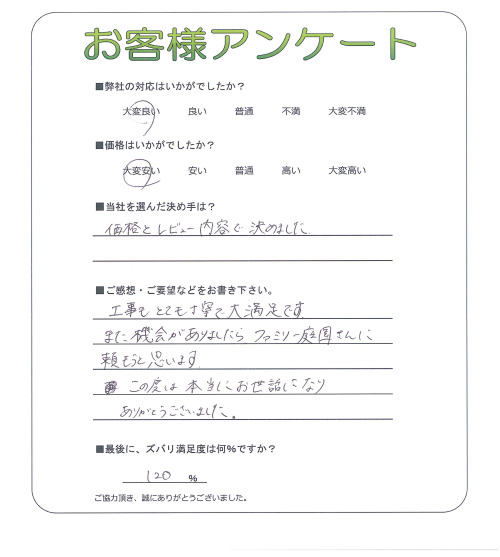 お客様アンケート
■弊社の対応はいかがでしたか?
大変良い 良い 普通 不満 大変不満
■価格はいかがでしたか?
大変安い 安い 普通 高い 大変高い
■当社を選んだ決め手は?
価格とレビュー内容で決めました
■ご感想・ご要望などをお書き下さい。
工事もとても丁寧で大満足です
また機会がありましたらファミリー庭園さんに
頼もうと思います
この度は本当にお世話になり
ありがとうございました。
■最後に、ズバリ満足度は何%ですか?
120 %
ご協力頂き、誠にありがとうございました。